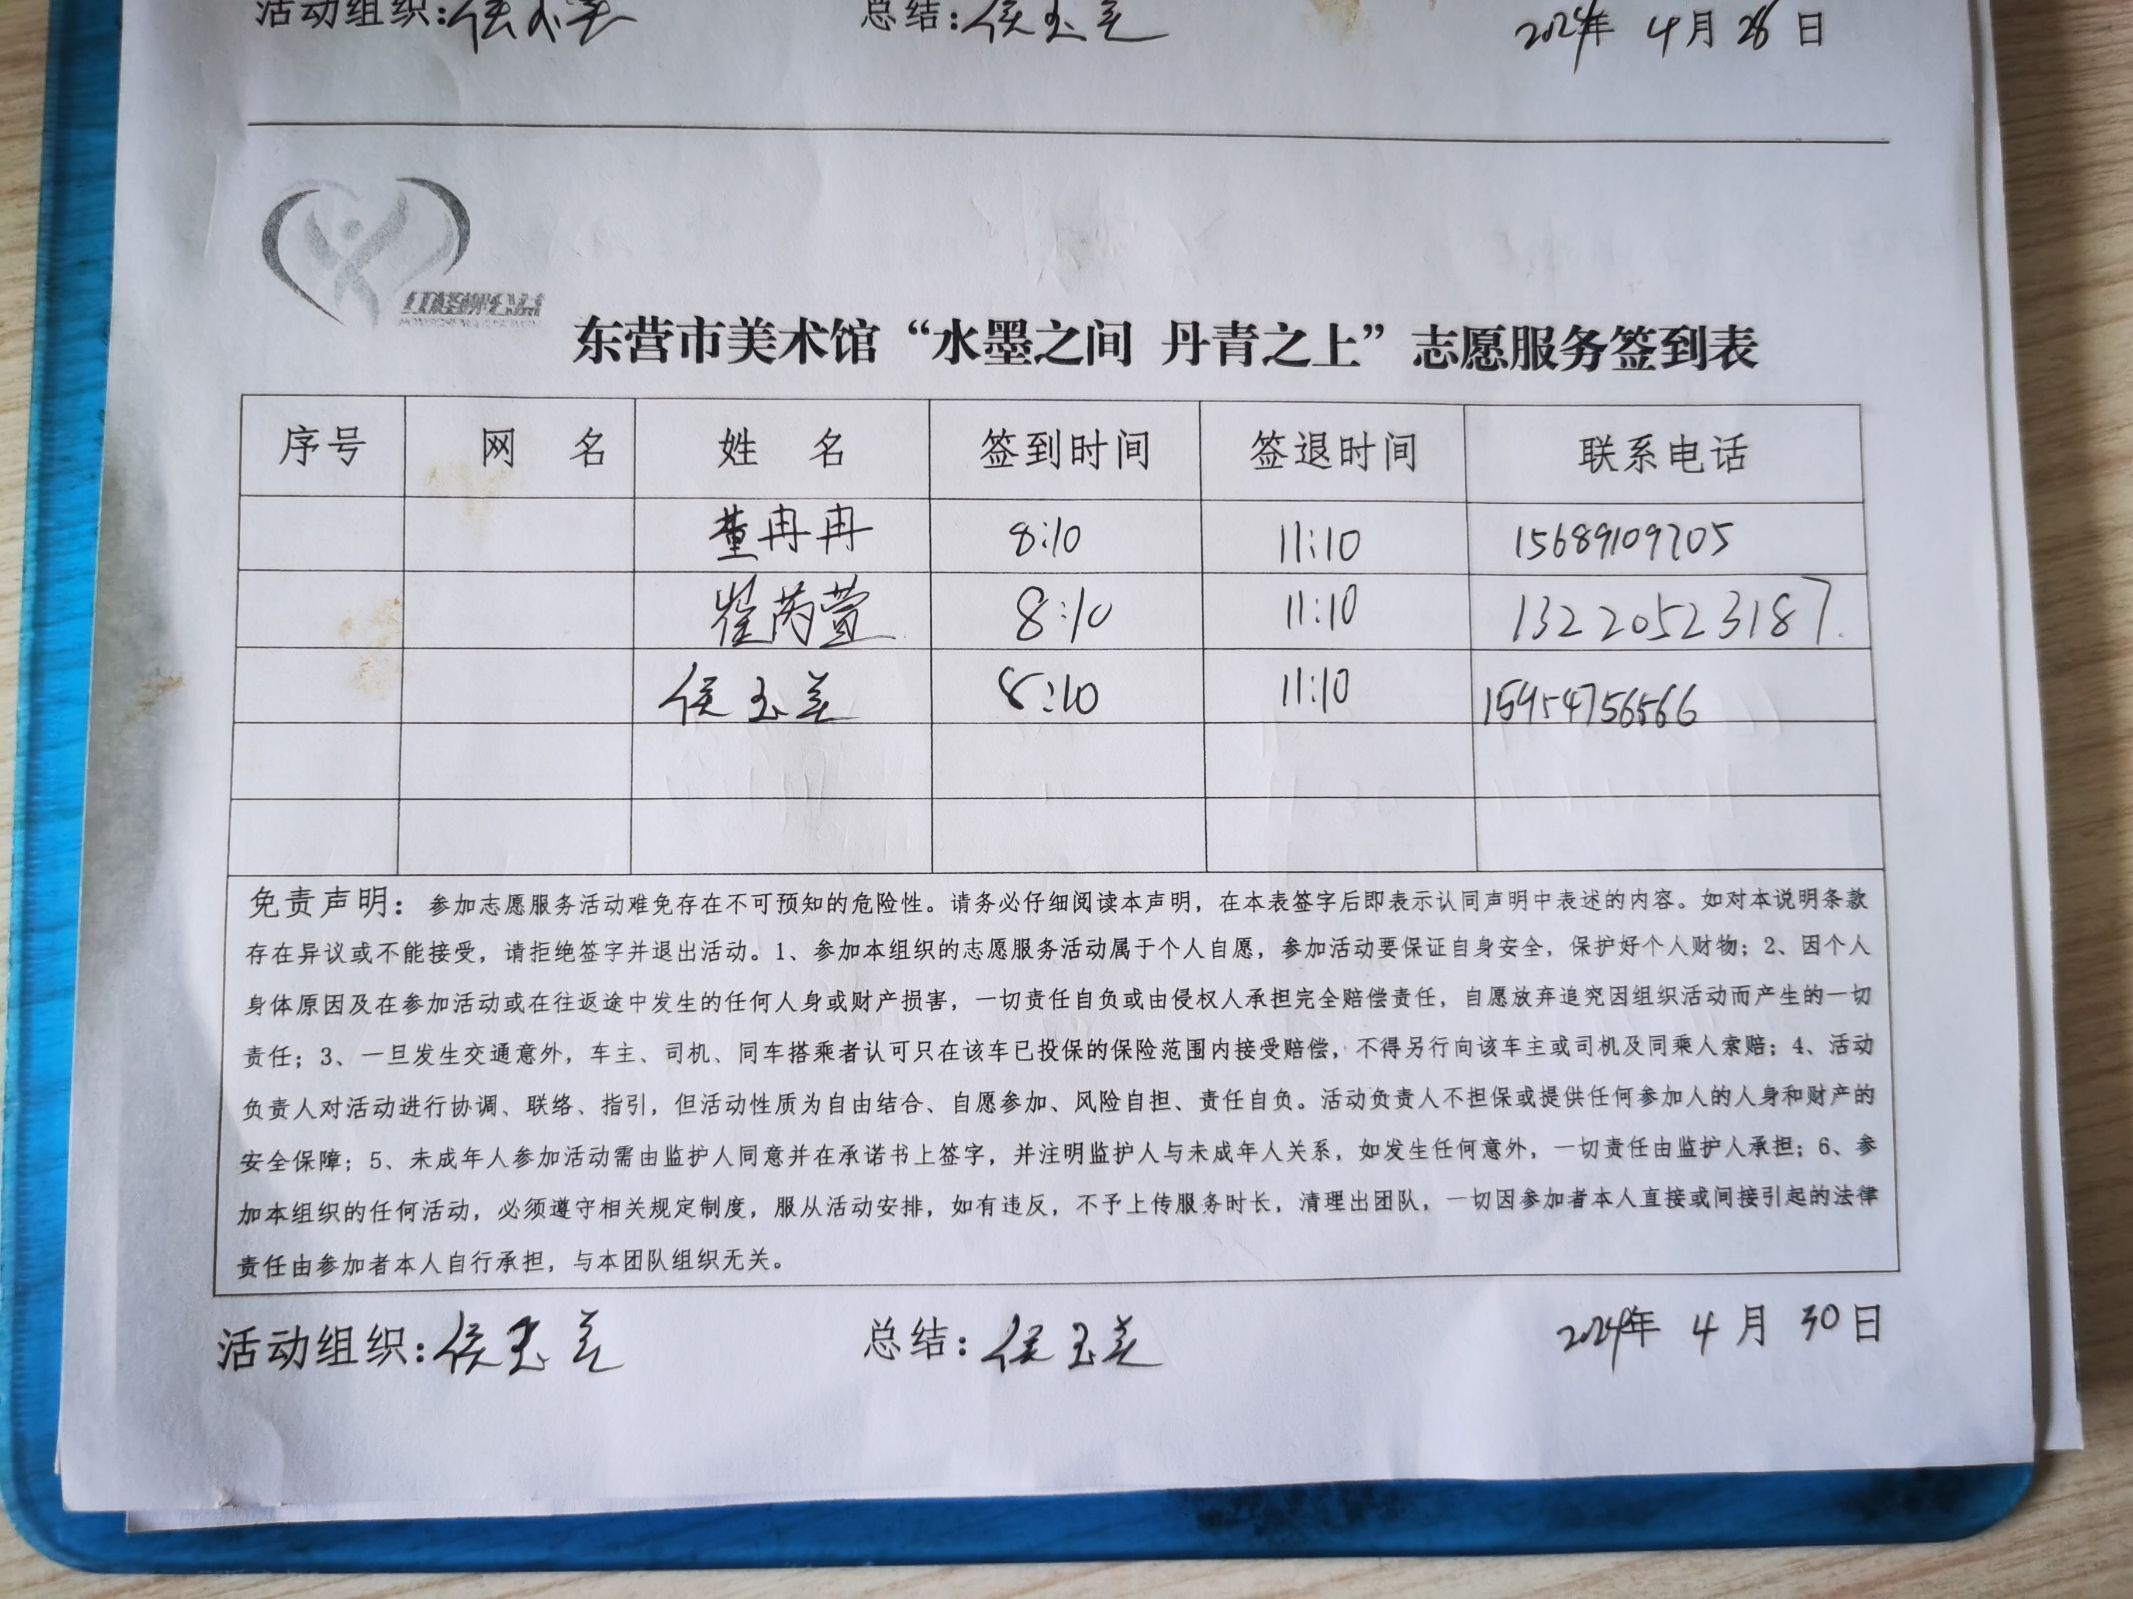 活动组织:侯玉美 总结:侯玉美 2024年 4月 26日
东营市美术馆“水墨之间 丹青之上”志愿服务签到表
序号 网 名 姓 名 签到时间 签退时间 联系电话
董冉冉 8:10 11:10 15689109705
翟芮萱 8:10 11:10 13220523187.
侯玉美 8:10 11:10 15954756566
免责声明：参加志愿服务活动难免存在不可预知的危险性。请务必仔细阅读本声明，在本表签字后即表示认同声明中表述的内容。如对本说明条款
存在异议或不能接受，请拒绝签字并退出活动。1、参加本组织的志愿服务活动属于个人自愿，参加活动要保证自身安全，保护好个人财物；2、因个人
身体原因及在参加活动或在往返途中发生的任何人身或财产损害，一切责任自负或由侵权人承担完全赔偿责任，自愿放弃追究因组织活动而产生的一切
责任；3、一旦发生交通意外，车主、司机、同车搭乘者认可只在该车已投保的保险范围内接受赔偿，不得另行向该车主或司机及同乘人索赔；4、活动
负责人对活动进行协调、联络、指引，但活动性质为自由结合、自愿参加、风险自担、责任自负。活动负责人不担保或提供任何参加人的人身和财产的
安全保障；5、未成年人参加活动需由监护人同意并在承诺书上签字，并注明监护人与未成年人关系，如发生任何意外，一切责任由监护人承担；6、参
加本组织的任何活动，必须遵守相关规定制度，服从活动安排，如有违反，不予上传服务时长，清理出团队，一切因参加者本人直接或间接引起的法律
责任由参加者本人自行承担，与本团队组织无关。
活动组织:侯玉美 总结:侯玉美 2024年 4月 30日